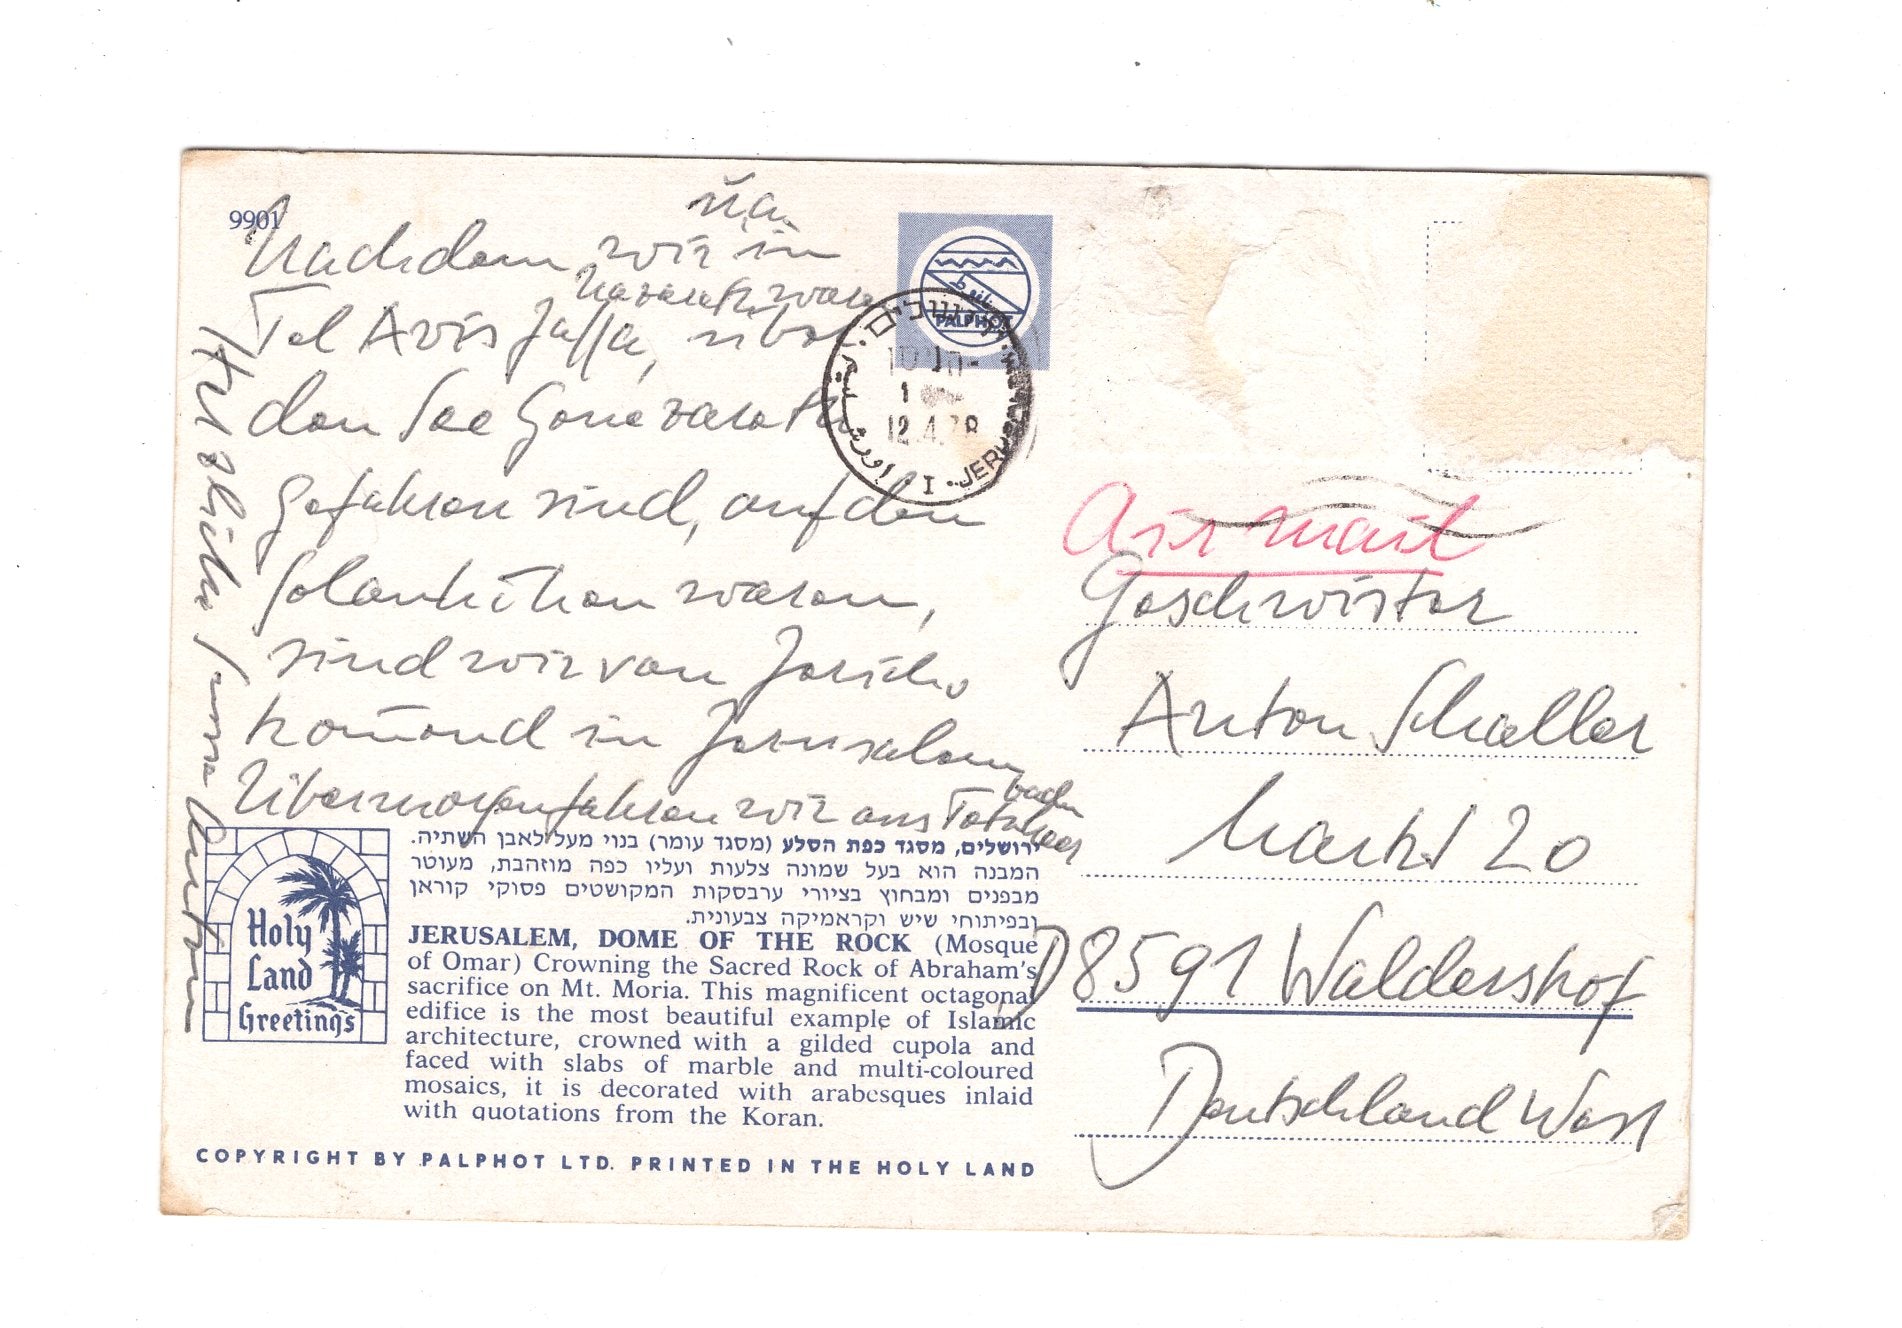 9901
u.a.
Nachdem wir in
Nazareth waren
Tel Aviv Jaffa, über
den See Genezareth
gefahren sind, auf den
Golanhöhen waren,
sind wir von Jericho
kom̄end in Jerusalem
Übermorgen fahren wir ans Tote Meer
baden
Herzliche Anton
PALPHOT
ירושלים
12.4.78
JERUSALEM
I
أورشليم
Air mail
Geschwister
Anton Schaller
Markt 20
D 8591 Waldershof
Deutschland West
ירושלים, מסגד כפת הסלע (מסגד עומר) בנוי מעל לאבן השתיה.
המבנה הוא בעל שמונה צלעות ועליו כפה מוזהבת, מעוטר
מבפנים ומבחוץ בציורי ערבסקות המקושטים פסוקי קוראן
ובפיתוחי שיש וקראמיקה צבעונית.
JERUSALEM, DOME OF THE ROCK (Mosque
of Omar) Crowning the Sacred Rock of Abraham's
sacrifice on Mt. Moria. This magnificent octagonal
edifice is the most beautiful example of Islamic
architecture, crowned with a gilded cupola and
faced with slabs of marble and multi-coloured
mosaics, it is decorated with arabesques inlaid
with quotations from the Koran.
Holy
Land
Greetings
COPYRIGHT BY PALPHOT LTD. PRINTED IN THE HOLY LAND